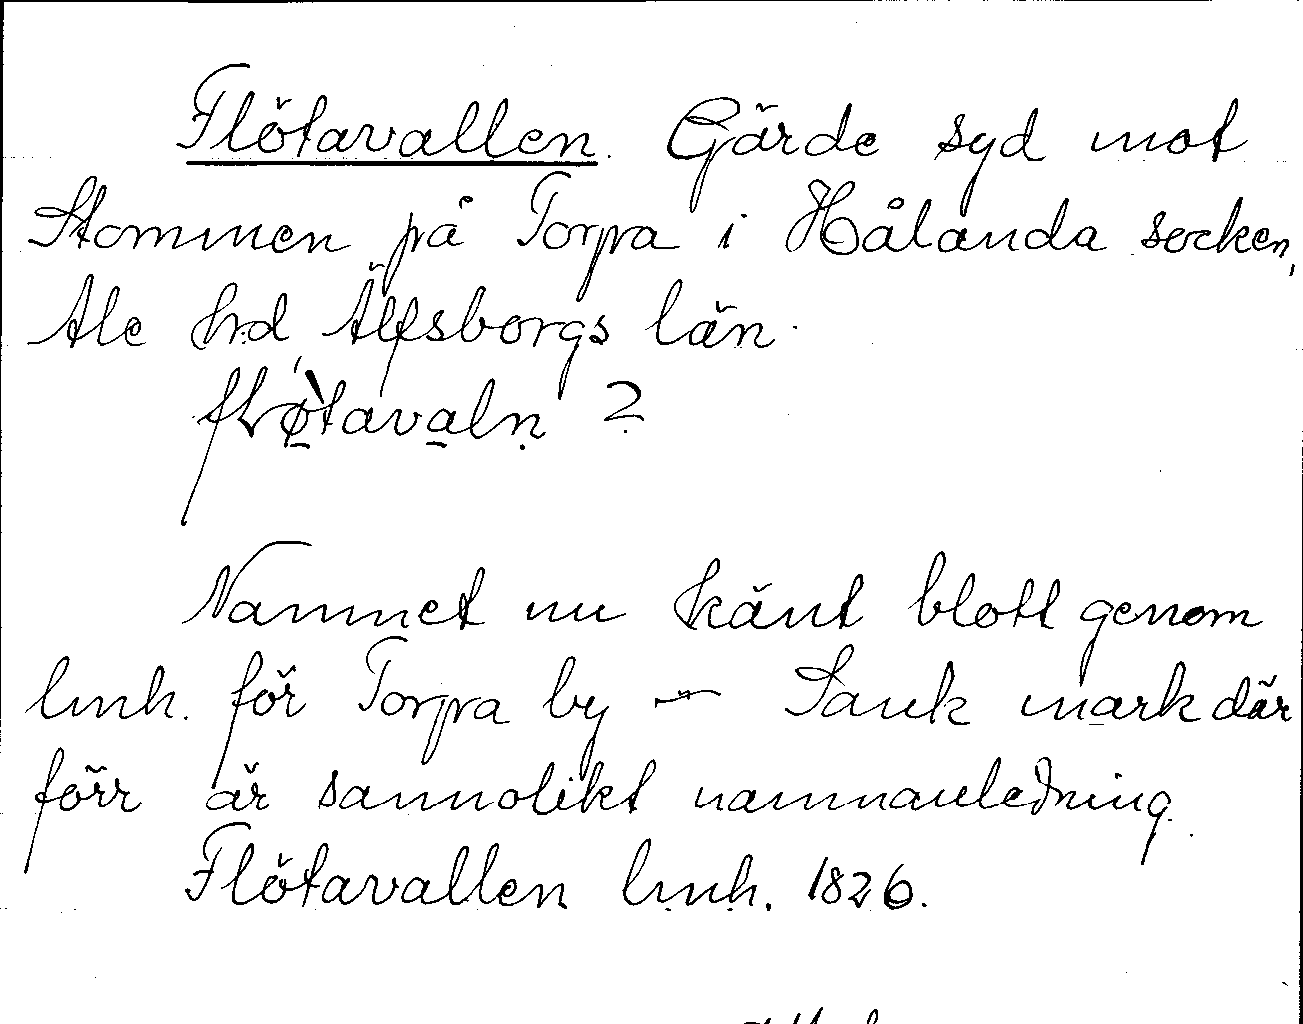 Flötavallen. Gärde syd mot
Stommen på Torpa i Hålanda socken,
Ale hrd Älfsborgs län.
Namnet nu känt blott genom
lmh. för Torpa by – Sank mark där
förr är sannolikt namnanledning.
Flötavallen lmh. 1826.